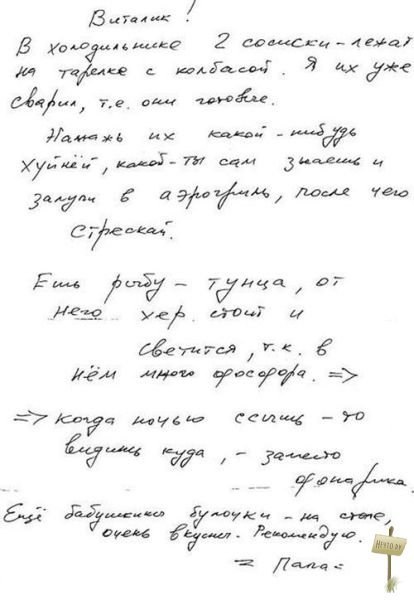 Виталик!
В холодильнике 2 сосиски - лежат
на тарелке с колбасой. Я их уже
сварил, т.е. они готовые.
Намажь их какой-нибудь
хуйнёй, какой-ты сам знаешь и
залупи в аэрогриль, после чего
стрескай.
Ешь рыбу - тунца, от
него хер стоит и
светится, т.к. в
нём много фосфора. =>
=> Когда ночью ссышь - то
видишь куда, - заместо
фонарика.
Ещё бабушкины булочки - на столе,
очень вкусные. Рекомендую.
= Папа =